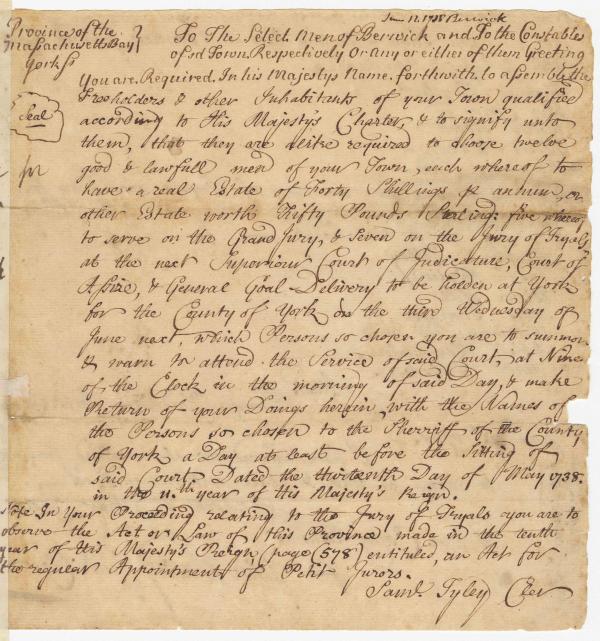 June 12. 1738 Berwick
Province of the
Massachusetts Bay
York ss
To The Select Men of Berwick and To the Constables
of sd Town Respectively Or any or either of them Greeting
You are Required In his Majestys Name forthwith to assemble the
Freeholders & other Inhabitants of your Town qualified
Seal
according to His Majesty's Charter, & to signify unto
them, that they are alike required to choose twelve
good & lawfull men of your Town, each whereof to
have a real Estate of Forty Shillings p annum, or
other Estate worth Fifty Pounds Sterling: five whereof
to serve on the Grand Jury, & Seven on the Jury of Tryals
at the next Superiour Court of Judicature, Court of
Assize, & General Goal Delivery to be holden at York
for the County of York on the third Wednesday of
June next, which Persons so chosen you are to summon
& warn to attend the Service of said Court, at Nine
of the Clock in the morning of said Day, & make
Return of your Doings herein, with the Names of
the Persons so chosen to the Sherriff of the County
of York a Day at least before the Sitting of
said Court Dated the thirteenth Day of May 1738.
in the 11.th year of His Majesty's Reign.
Note In Your Proceeding relating to the Jury of Tryals you are to
observe the Act or Law of this Province made in the tenth
year of His Majesty's Reign (page (578) entituled, an Act for
the regular Appointment of Petit Jurors.
Saml. Tyley Cler